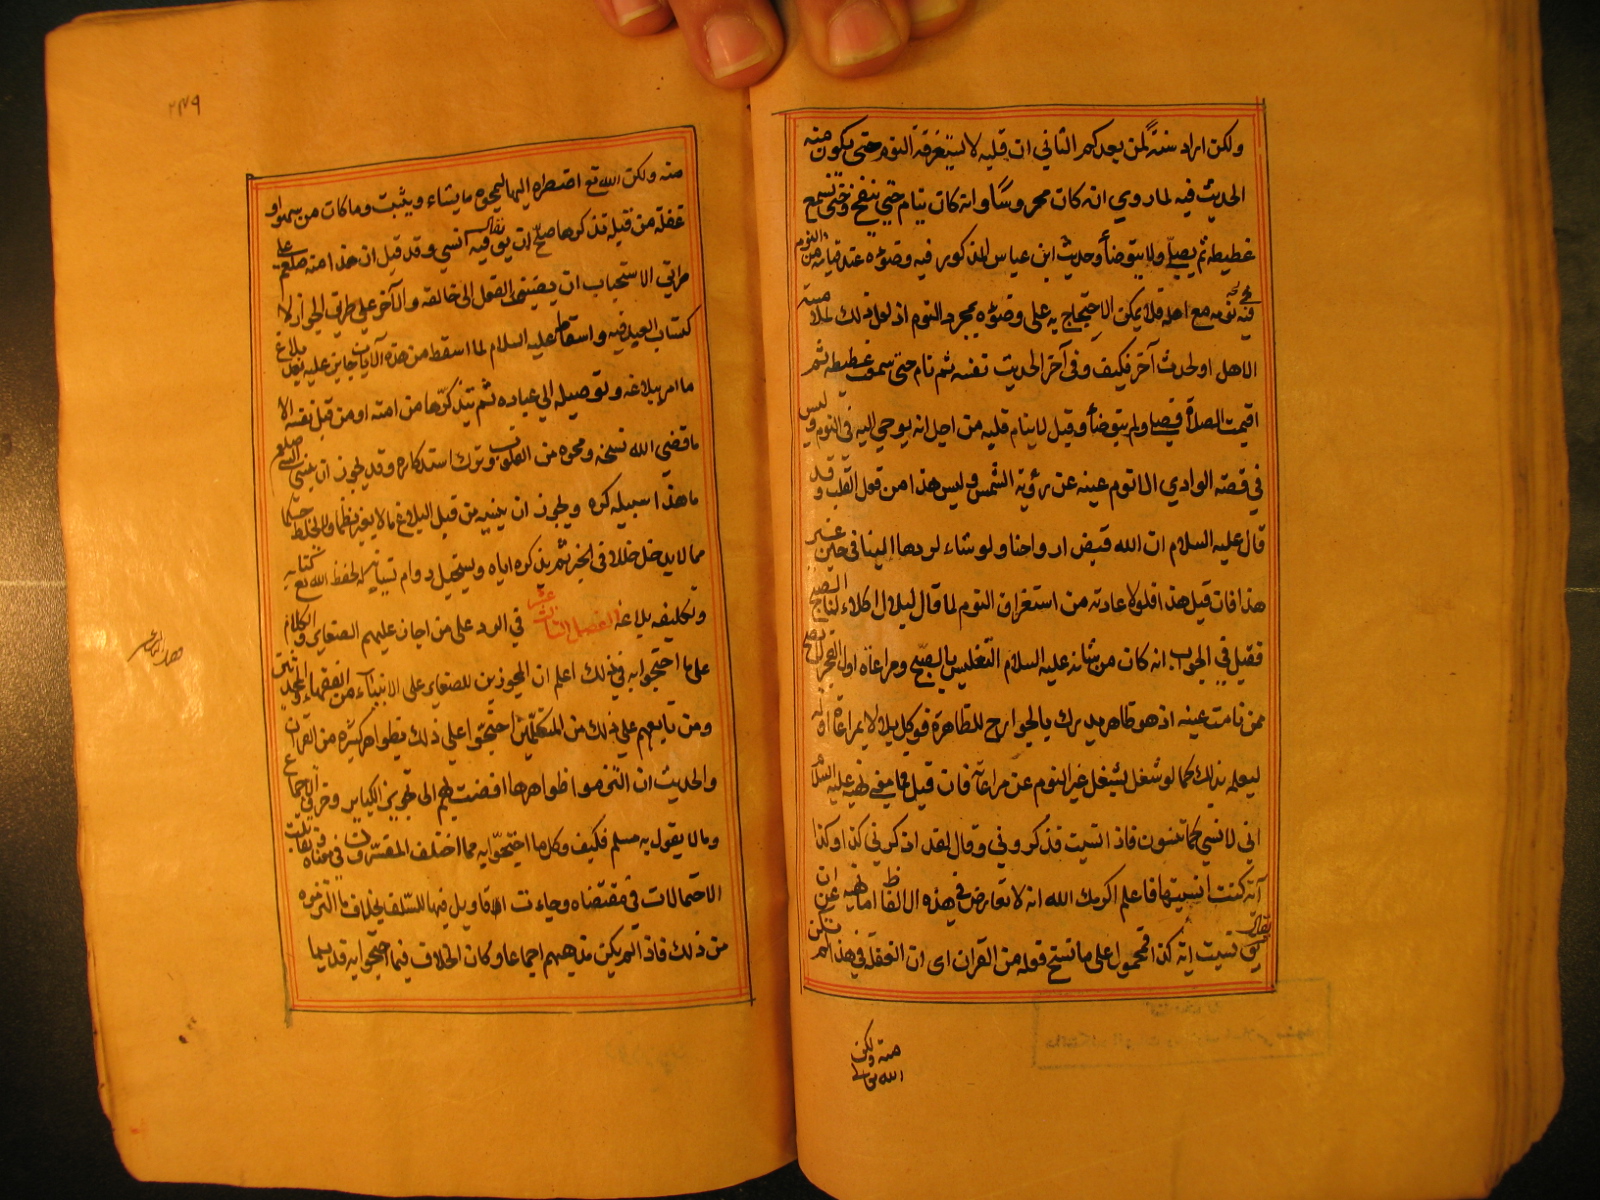 ولكن اراد سنة لمن بعدكم الثاني ان قلبه لا يستغرقه النوم حتى يكون منه
الحديث فيه لما روي انه كان محروسا وانه كان ينام حتى ينفخ وحتى يسمع
غطيطه ثم يصلي ولا يتوضأ وحديث ابن عباس المذكور فيه وضوؤه عند قيامه من النوم
فيه نومه مع اهله فلا يمكن الاحتجاج به على وضوئه بمجرد النوم اذ لعل ذلك لملامسة
الاهل او لحدث آخر فكيف وفي آخر الحديث نفسه ثم نام حتى سمعت غطيطه ثم
اقيمت الصلاة فصلى ولم يتوضأ وقيل لا ينام قلبه من اجل انه يوحى اليه في النوم وليس
في قصة الوادي الا نوم عينه عن رؤية الشمس وليس هذا من فعل القلب وقد
قال عليه السلام ان الله قبض ارواحنا ولو شاء لردها الينا في حين غير
هذا فان قيل فلولا عادته من استغراق النوم لما قال لبلال اكلاء لنا الصبح
فقيل في الجواب انه كان من شانه عليه السلام التغليس بالصبح ومراعاة اول الفجر لا تصح
ممن نامت عينه اذ هو ظاهر يدرك بالجوارح الظاهرة فوكل بلالا بمراعاة اوله
ليعلمه بذلك كما لو شغل بشغل غير النوم عن مراعاته فان قيل فما معنى نهيه عليه السلام
اني لا نسي كما تنسون فاذا نسيت فذكروني وقال لقد اذكرني كذا وكذا
آية كنت انسيتها فاعلم اكرمك الله انه لا تعارض في هذه الالفاظ اما نهيه عن ان
يقال نسيت آية كذا فمحمول على ما نسخ فعله من القران اى ان الغفلة في هذا لم تكن
منه ولكن
الله تعالى
٢٤٩
منه ولكن الله تع اضطره اليها ليمحو ما يشاء ويثبت وما كان من سهو او
غفلة من قبله تذكرها صلح ان يقال فيه انسي وقد قيل ان هذا منه صلعم على
طريق الاستحباب ان يضيف الفعل الى خالقه والآخر على طريق الجواز لا
كتساب العبد فيه واسقاطه عليه السلام لما اسقط من هذه الآيات جايز عليه بعد بلاغ
ما امر ببلاغه وتوصيله الى عباده ثم يتذكرها من امته او من قبل نفسه الا
ما قضى الله نسخه ومحوه من القلوب وترك استذكاره وقد يجوز ان ينسى النبي صلعم
ما هذا سبيله كره ويجوز ان ينسيه من قبل البلاغ ما لا يغير نظما ولا يخلط حكما
مما لا يدخل خللا في الخبر ثم يذكره اياه ويستحيل دوام نسيانه له لحفظ الله تع كتابه
وتكليفه بلاغه الفصل الثالث عشر في الرد على من اجاز عليهم الصغاير والكلام
على ما احتجوا به في ذلك اعلم ان المجوزين للصغاير على الانبياء من الفقهاء والمحدثين
ومن تابعهم على ذلك من المتكلمين احتجوا على ذلك بظواهر كثيرة من القران
والحديث ان التزموا ظواهرها افضت بهم الى تجويز الكباير وخرق الاجماع
وما لا يقول به مسلم فكيف وكل ما احتجوا به مما اختلف المفسرون في معناه وتقابلت
الاحتمالات في مقتضاه وجاءت اقاويل فيها للسلف بخلاف ما التزموه
من ذلك فاذا لم يكن مذهبهم اجماعا وكان الخلاف فيما احتجوا به قديما